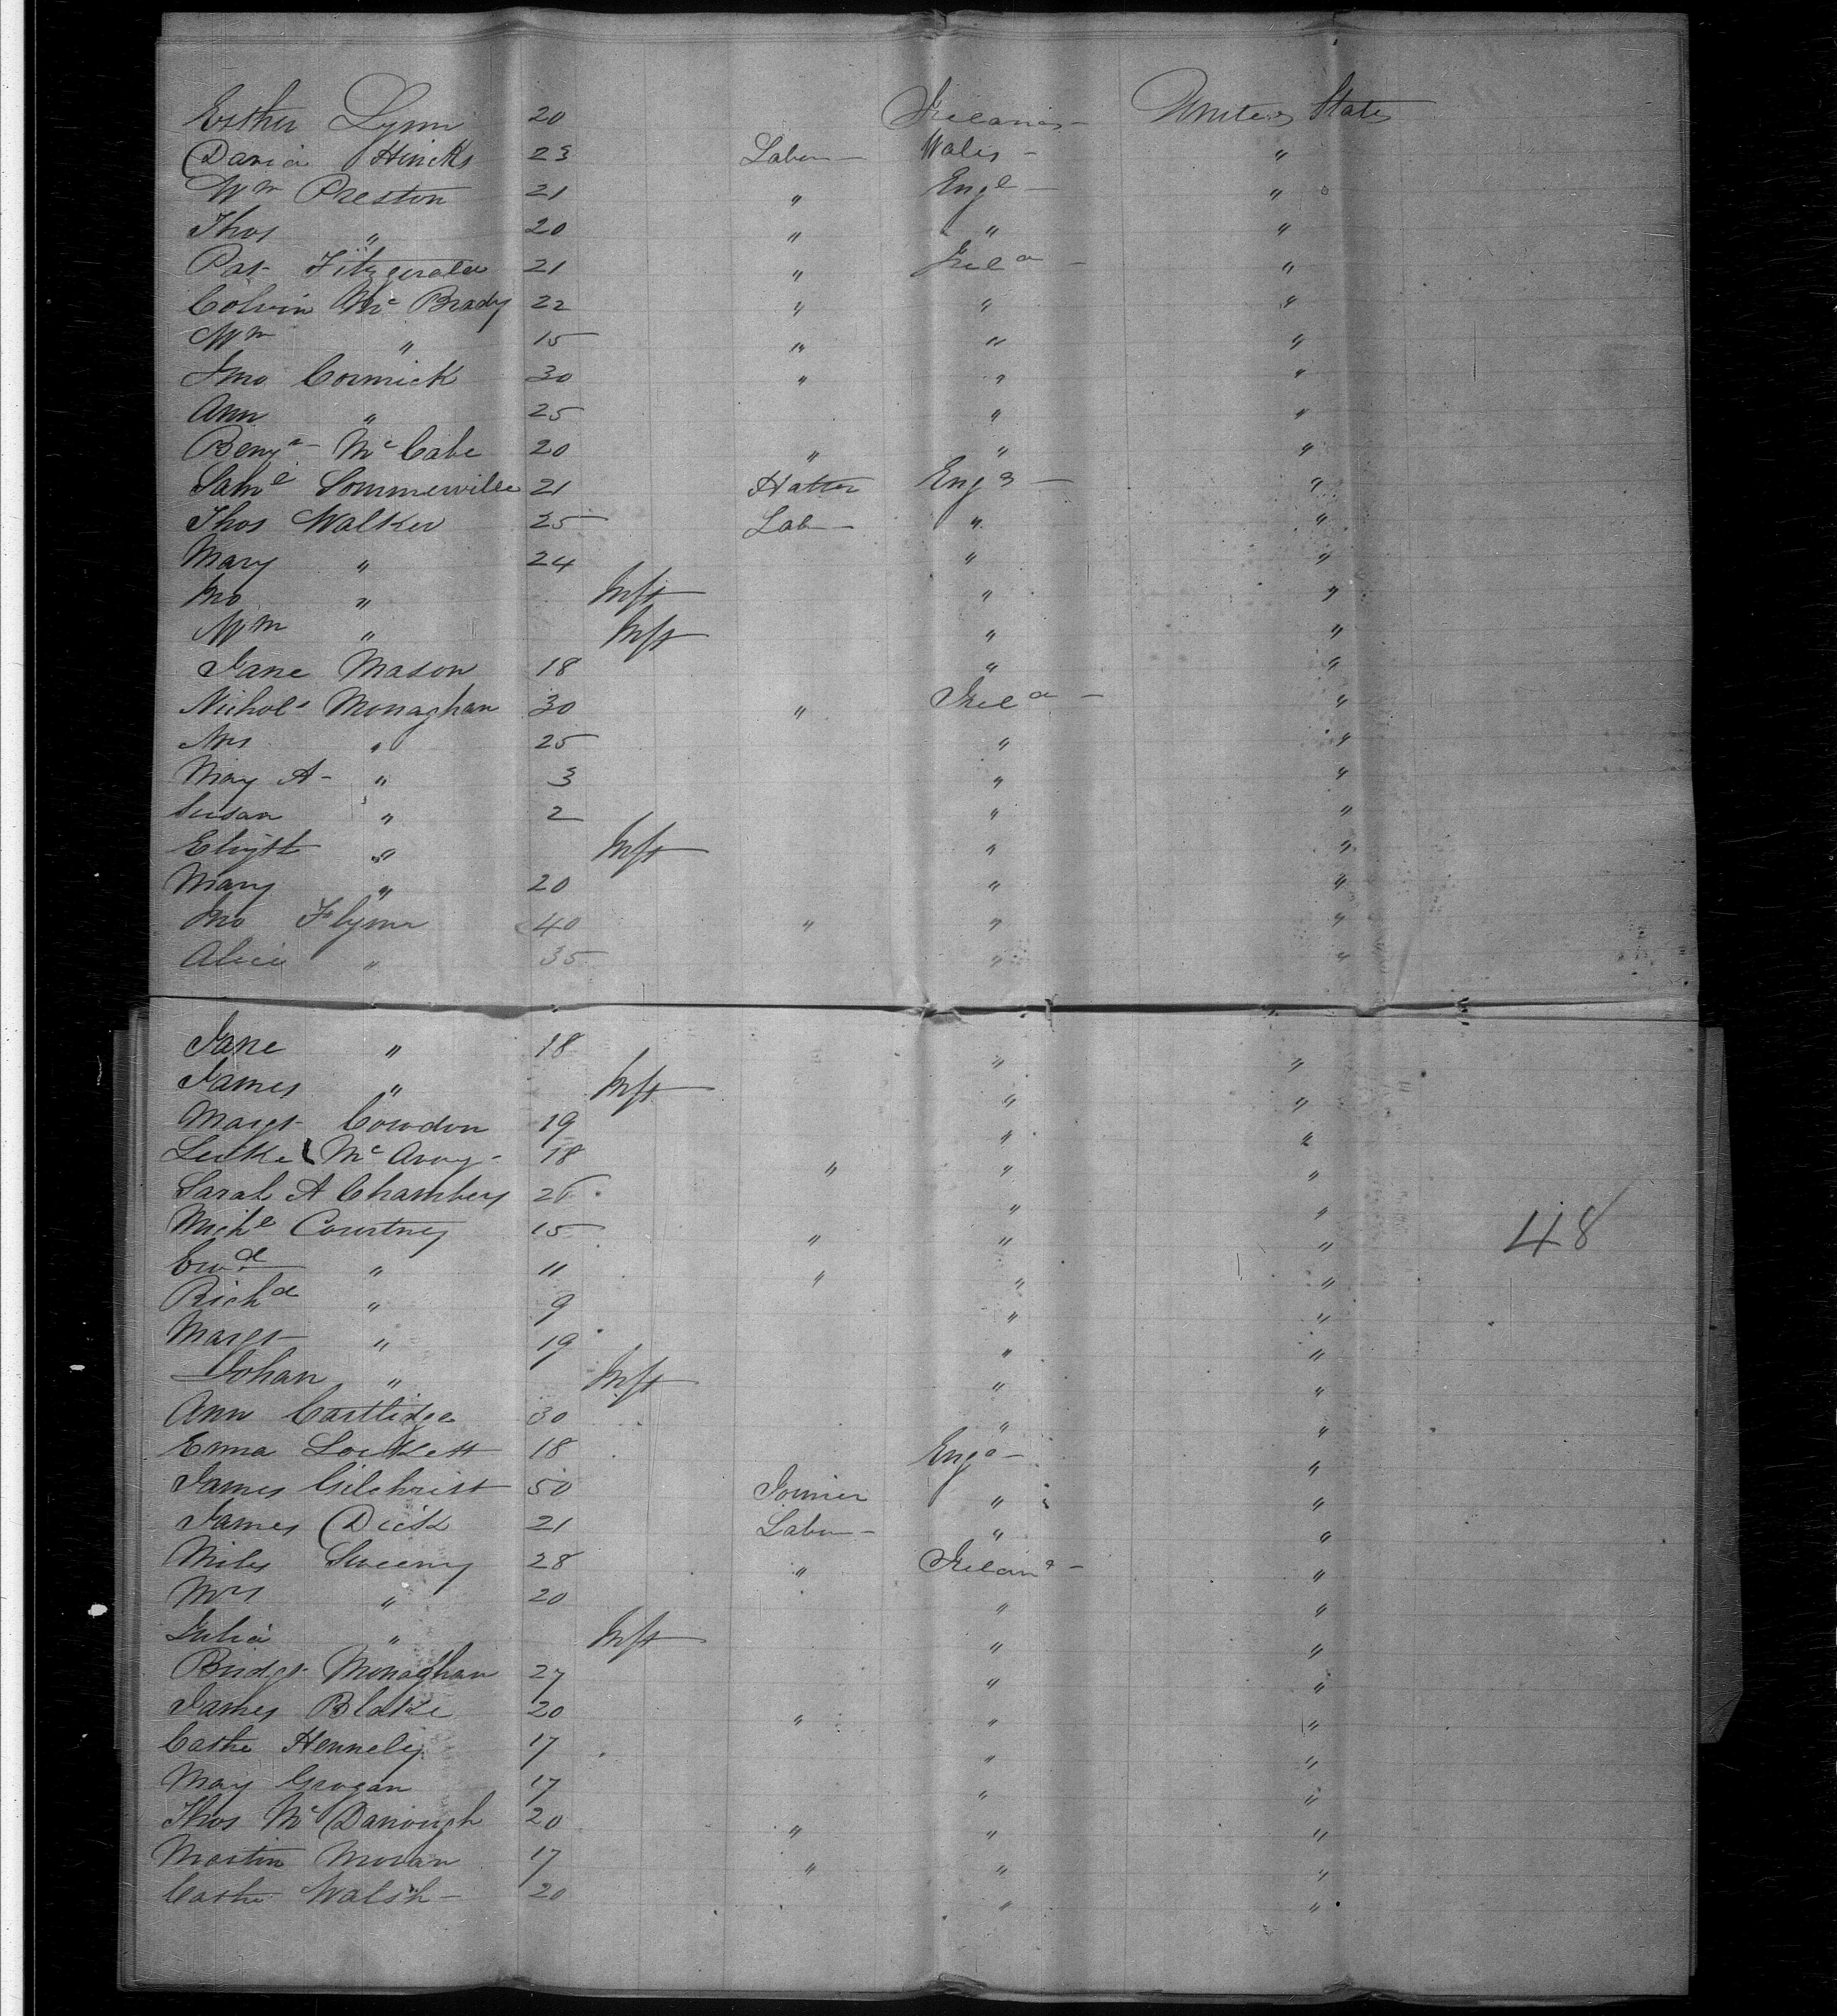 Esther Lynn 20 Ireland - United States
David Hincks 23 Labor - Wales - "
Wm Preston 21 " Engd - "
Thos " 20 " " "
Pat Fitzgerald 21 " Ireld - "
Colvin Mc Brady 22 " " "
Wm " 15 " " "
Jno Cormick 30 " " "
Ann " 25 " "
Benjn Mc Cabe 20 " " "
Saml Sommerville 21 Hatter Engd - "
Thos Walker 25 Lab - " "
Mary " 24 " "
Jno " Inft " "
Wm " Inft " "
Jane Mason 18 " "
Nichols Monaghan 30 " Ireld - "
Mrs " 25 " "
Mary A - " 3 " "
Susan " 2 " "
Elizth " Inft " "
Mary " 20 " "
Jno Flynn 40 " " "
Alice " 35 " "
Jane " 18 " "
James " Inft " "
Margt Cowdon 19 " "
Luke Mc Avoy - 18 " " "
Sarah A Chambers 26 " "
Michl Courtney 15 " " "
48
Edwd " 11 " " "
Richd " 9 " "
Margt " 19 " "
Johan " Inft " "
Ann Cartlidge 30 " "
Emma Lockett 18 Engd - "
James Gilchrist 50 Joiner " "
James Dick 21 Labor - " "
Miles Sweeny 28 " Ireland - "
Mrs " 20 " "
Julia " Inft " "
Bridgt Monaghan 27 " "
James Blake 20 " " "
Cathe Hennely 17 " "
Mary Grogan 17 " "
Thos Mc Donough 20 " " "
Martin Moran 17 " " "
Cathe Walsh - 20 " "